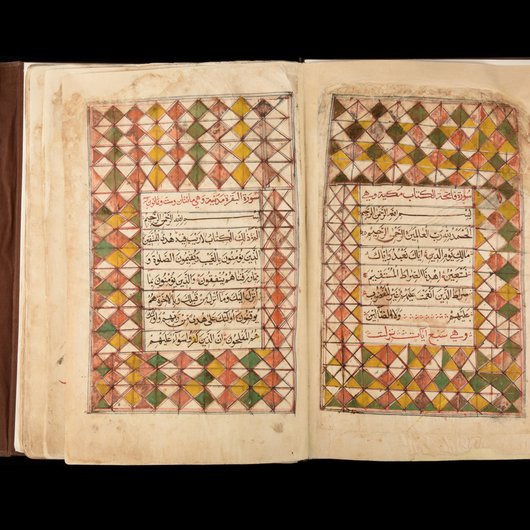 سورة فاتحة الكتاب مكية وهي
بسم الله الرحمن الرحيم
الحمد لله رب العالمين الرحمن الرحيم
مالك يوم الدين إياك نعبد وإياك
نستعين اهدنا الصراط المستقيم
صراط الذين أنعمت عليهم غير المغضوب
عليهم ولا الضالين
وهي سبع آيات
سورة البقرة مدنية وهي مائتان وست وثمانون
بسم الله الرحمن الرحيم
الم ذلك الكتاب لا ريب فيه هدى للمتقين
الذين يؤمنون بالغيب ويقيمون الصلوة و
مما رزقناهم ينفقون والذين يؤمنون بما
أنزل إليك وما أنزل من قبلك وبالآخرة هم
يوقنون أولئك على هدى من ربهم وأولئك
هم المفلحون إن الذين كفروا سواء عليهم